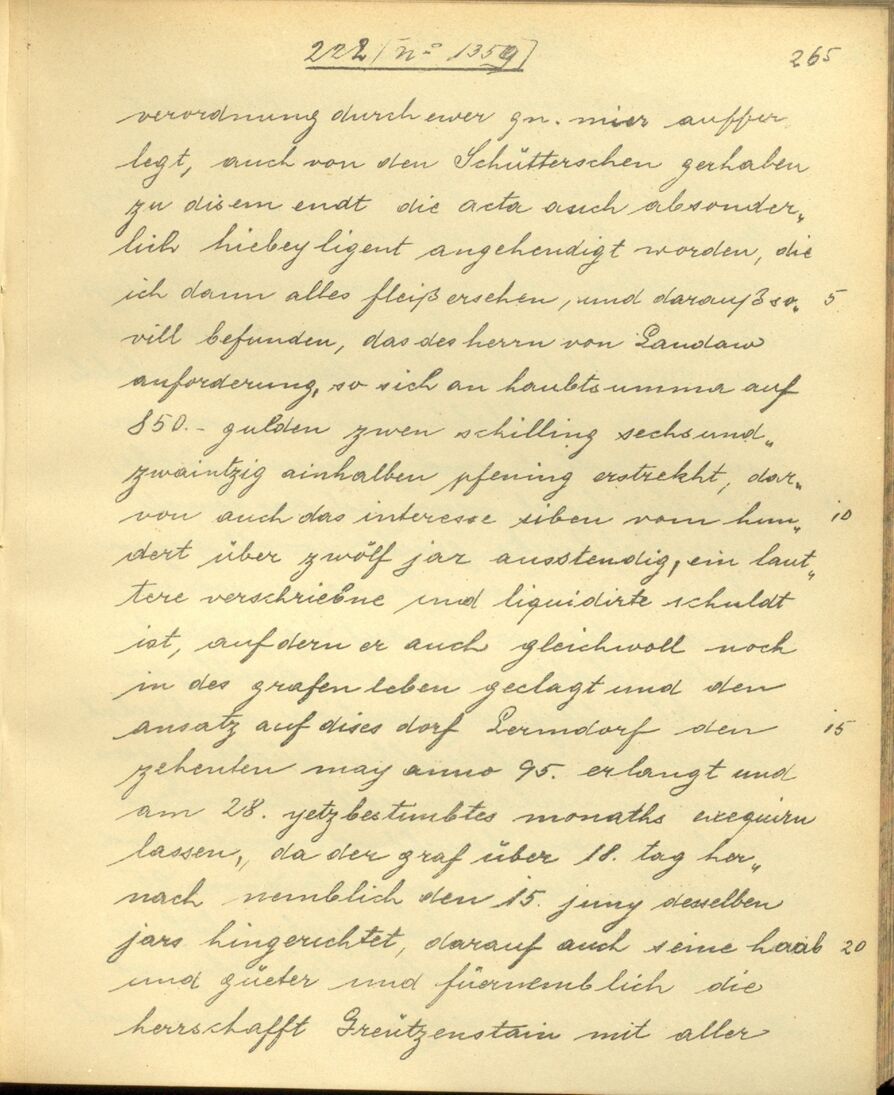 222 [nº 1359] 265
verordnung durch ewer gn. mier auffer
legt, auch von den Schütterschen gerhaben
zu disem endt die acta auch absonder„
lich hiebey ligent angehendigt worden, die
ich dann alles fleiß ersehen, und darauß so„ 5
vill befunden, das des herrn von Landaw
anforderung, so sich an haubtsumma auf
850.- gulden zwen schilling sechsund„
zwaintzig ainhalben pfening erstrekht, dar„
von auch das interesse siben vom hun„ 10
dert über zwölf jar ausstendig, ein laut„
tere verschriebne und liquidirte schuldt
ist, auf dern er auch gleichwoll noch
in des grafen leben geclagt und den
ansatz auf dises dorf Lerndorf den 15
zehenten may anno 95. erlangt und
am 28. yetzbestimbtes monaths exequirn
lassen, da der graf über 18. tag her„
nach nemblich den 15. juny desselben
jars hingerichtet, darauf auch seine haab 20
und güeter und füernemblich die
herrschafft Greützenstain mit aller